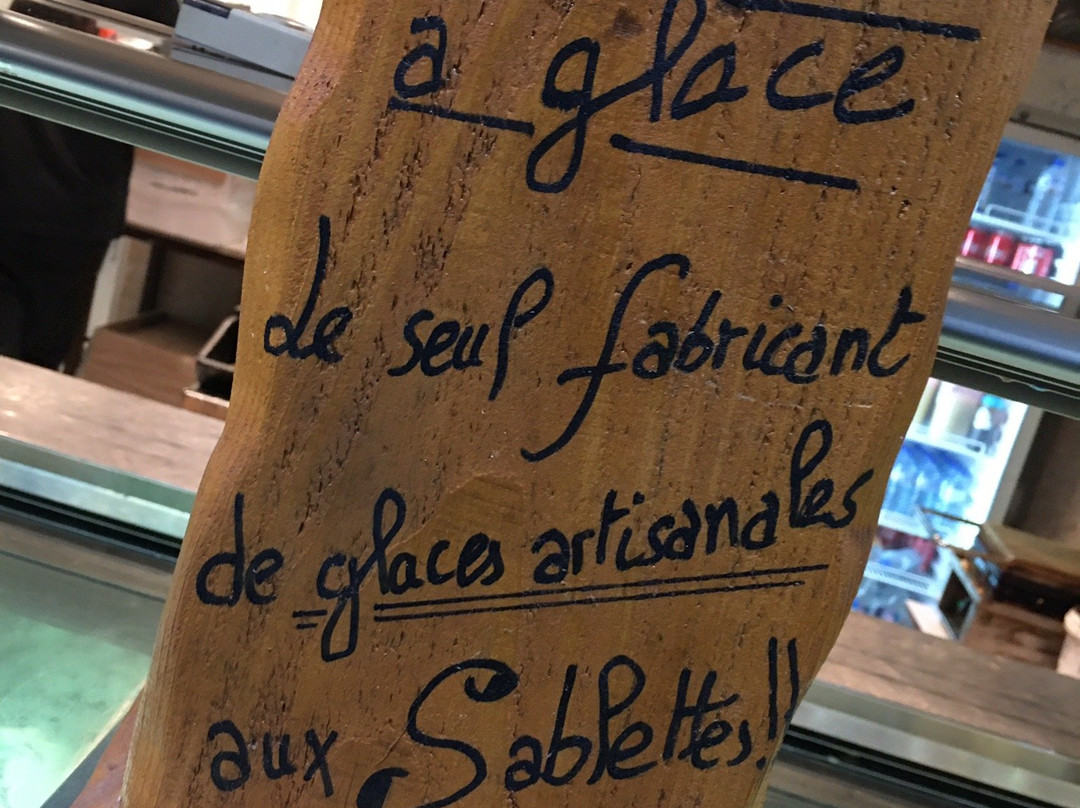 a glace
Le seul fabricant
de glaces artisanales
aux Sablettes!!